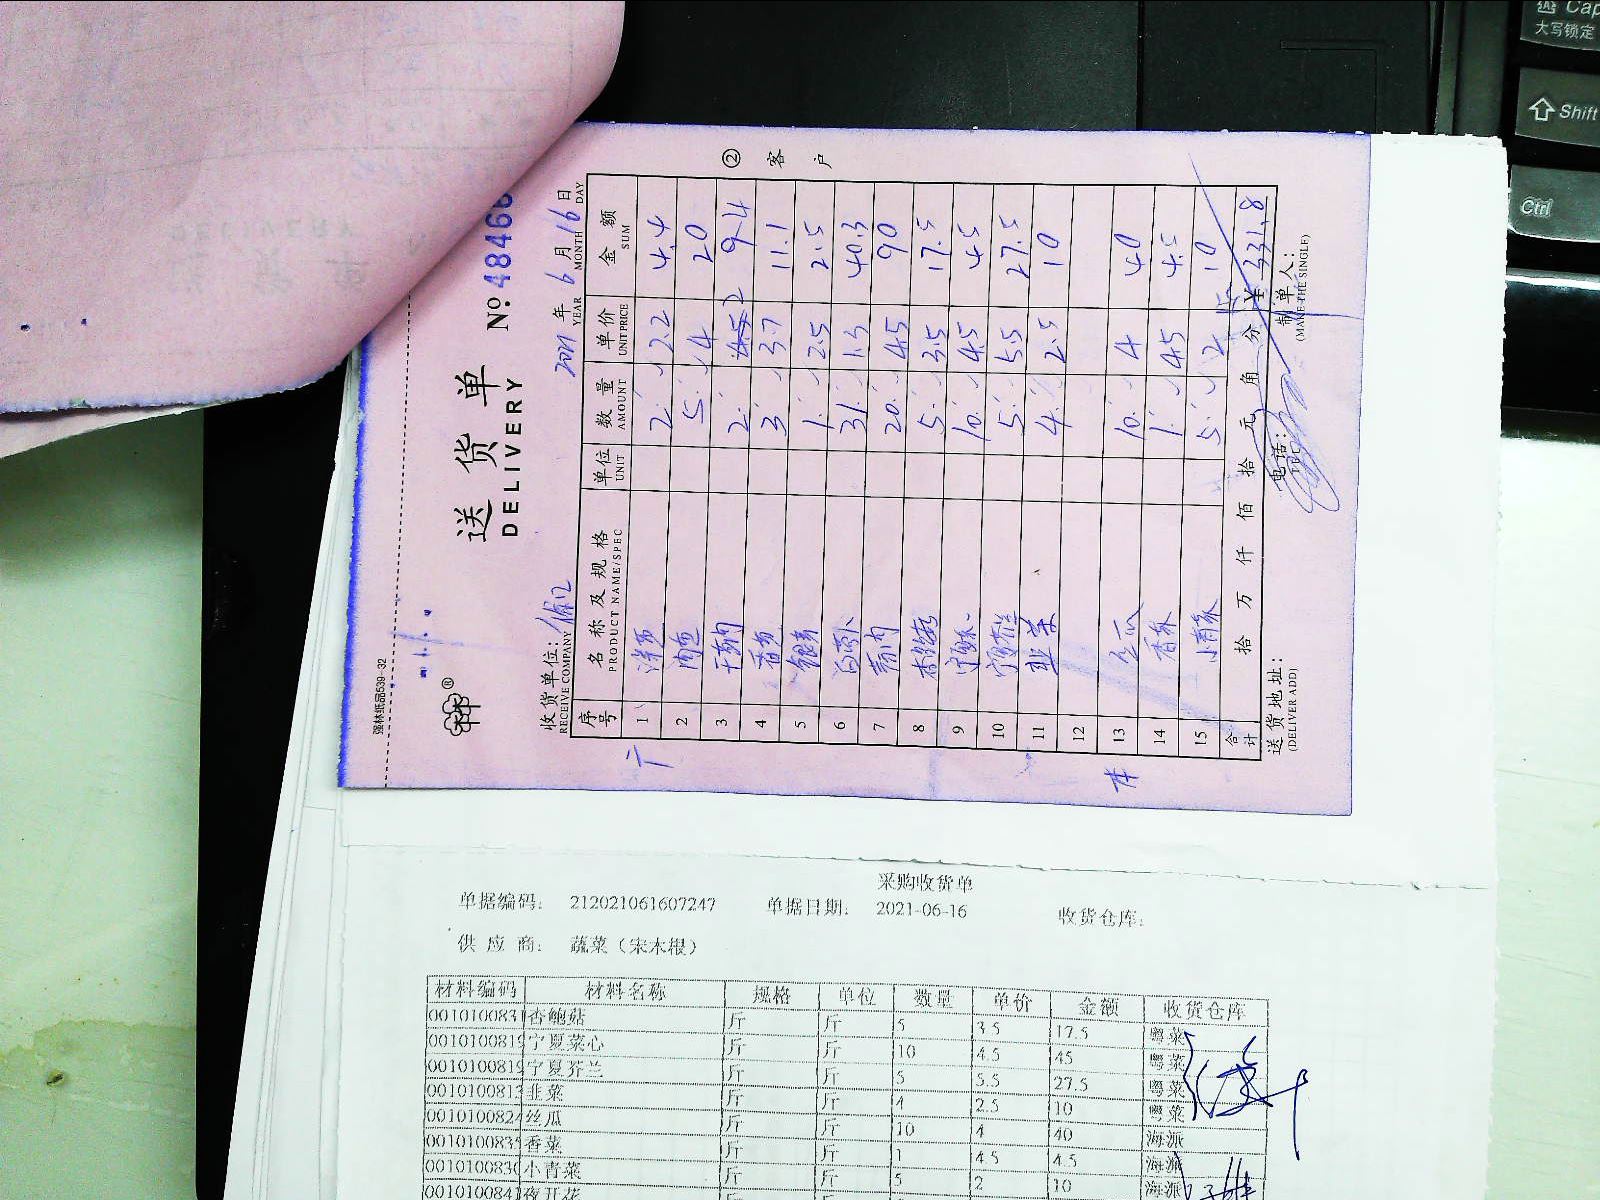 强林纸品539-32
送货单
DELIVERY
№ 48466
收货单位:
RECEIVE COMPANY
2021年6月16日
YEAR MONTH DAY
② 客户
序号 名称及规格 单位 数量 单价 金额
PRODUCT NAME/SPEC UNIT AMOUNT UNIT PRICE SUM
1 洋芋 2 2.2 4.4
2 5 4 20
3 2 2 9.4
4 香芹 3 3.7 11.1
5 1 2.5 2.5
6 31 1.3 40.3
7 20 4.5 90
8 5 3.5 17.5
9 10 4.5 45
10 5 5.5 27.5
11 韭菜 4 2.5 10
12
13 丝瓜 10 4 40
14 香菜 1 4.5 4.5
15 小青菜 5 2 10
合计 拾 万 仟 佰 拾 元 角 分 ¥ 331.8
送货地址:
(DELIVER ADD)
电话:
TEL
制单人:
(MAKE THE SINGLE)
采购收货单
单据编码: 212021061607247 单据日期: 2021-06-16 收货仓库:
供应商: 蔬菜(宋木根)
材料编码 材料名称 规格 单位 数量 单价 金额 收货仓库
0010100831 杏鲍菇 斤 斤 5 3.5 17.5 粤菜
0010100819 宁夏菜心 斤 斤 10 4.5 45 粤菜
0010100819 宁夏芥兰 斤 斤 5 5.5 27.5 粤菜
0010100813 韭菜 斤 斤 4 2.5 10 粤菜
0010100824 丝瓜 斤 斤 10 4 40 海派
0010100835 香菜 斤 斤 1 4.5 4.5 海派
0010100830 小青菜 斤 斤 5 2 10 海派
0010100841 夜开花
Cap
大写锁定
Shift
Ctrl